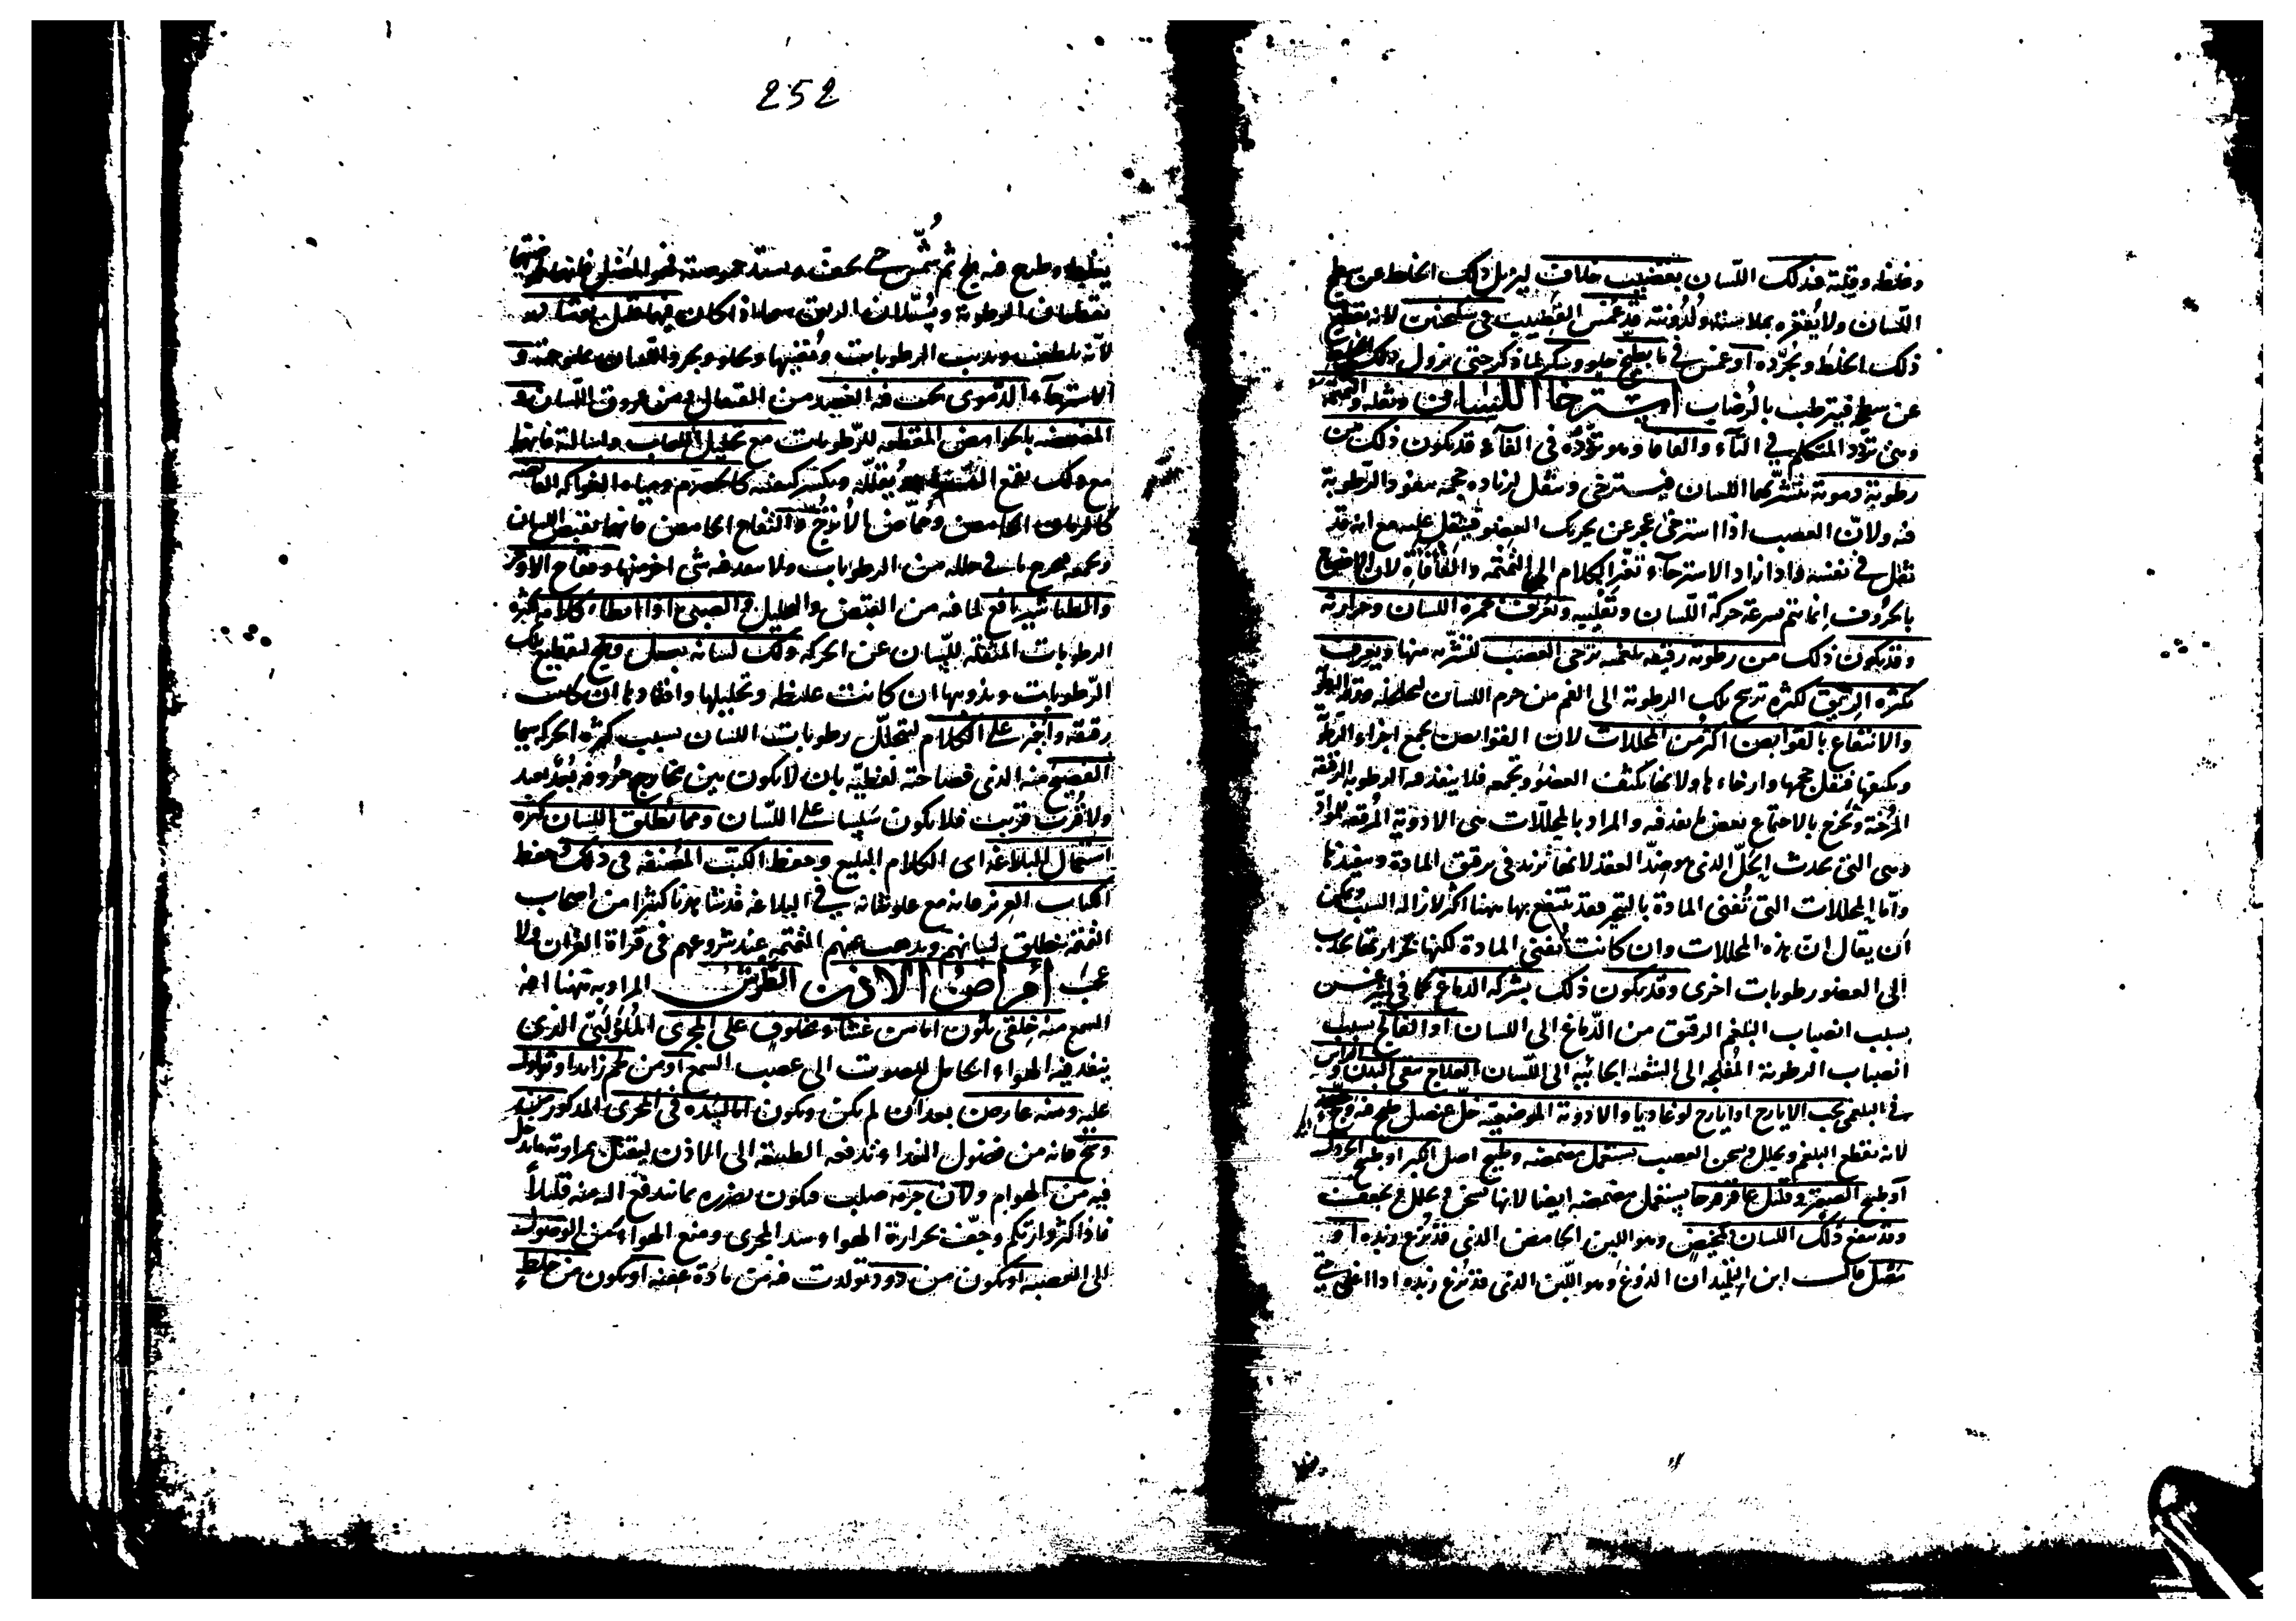 وغلظه وقلته فدلك اللسان بقضيب خلاف ليزيل ذلك الخلط عن سطح
اللسان ولا يُنفره بملاسته ولُدُونته قد غمس القضيب في سكنجبين لانه يقطع
ذلك الخلط ويجرده او غمس في ما بطيخ حلو وسكر لما ذكر حتى يزول ذلك الخلط
عن سطحه فيترطب بالرضاب استرخا اللسان وثقله
ومن تردد المتكلم في التآء والفافا وهو تردده في الفآء قد يكون ذلك من
رطوبة دموية يتشربها اللسان فيسترخى ويثقل لزيادة حجمه بنفوذ الرطوبة
فيه ولان العصب اذا استرخى عجز عن تحريك العضو فيثقل عليه مع انه قد
ثقل في نفسه واذا زاد الاسترخآء تغير الكلام الى التمتمه والفأفأة لان
بالحروف انما يتم بسرعة حركة اللسان وتقليبه وتعرف بحمرة اللسان وحرارته
وقد يكون ذلك من رطوبة رقيقه بلغميه ترخى العصب لتشربه منها ويعرف
بكثرة الريق لكثرة ترشح تلك الرطوبة الى الفم من جرم اللسان
والانتفاع بالقوابض اكثر من المحللات لان القوابض تجمع اجزاء الرطوبة
وتكثفها فيقل حجمها وارخاءها ولانها تكثف العضو وتجمعه فلا ينفذ فيه الرطوبة الرقيقة
المرخية وتخرج بالاجتماع بعض ما نفذ فيه والمراد بالمحللات هي الادوية المرققه للمواد
وهي التي تحدث الحل الذي هو ضد العقد لانها تزيد في ترقيق المادة وتنفيذها
واما المحللات التي تفنى المادة بالتبخر فقد ينتفع بها ههنا اكثر لازاله السبب ويمكن
ان يقال ان هذه المحللات وان كانت تفنى المادة لكنها بحرارتها تجذب
الى العضو رطوبات اخرى وقد يكون ذلك بشركة الدماغ كما في ليثرغس
بسبب انصباب البلغم الرقيق من الدماغ الى اللسان او الفالج بسبب
انصباب الرطوبة المفلجه الى الشقه الجانبيه الى اللسان العلاج تنقى البدن والراس
في البلغمى بحب الايارج او ايارج لوغاديا والادوية الموضعية خل عنصل طبخ فيه
لانه يقطع البلغم ويحلل ويسخن العصب يستعمل مضمضه وطبيخ اصل الكبر او طبيخ الخردل
او طبيخ الصعتر وقليل عاقرقرحا يستعمل مضمضه ايضا لانها تسخن وتحلل وتجفف
وقد ينفع دلك اللسان بالمخيض وهو اللبن الحامض الذى قد نزع زبده او
بمصل قال ابن التلميذ ان الدوغ وهو اللبن الذى قد نزع زبده اذا اغلى حتى
252
يغلظ وطرح فيه ملح ثم شمس حتى يجف ويشتد حموضته فهو المصل
يقطعان الرطوبة ويسيلان الريق سيما اذا كان فيهما
لانه يلطف ويذيب الرطوبات ويفنيها ويجلو ويجرد اللسان
الاسترخآء الدموى يجب فيه الفصد من القيفال ومن عروق اللسان و
المضمضه بالحوامض المقطعه للرطوبات مع تحليل اللعاب واسالته فانها
مع ذلك يقمع وتقلله وتكسر كيفيته كالحصرم ومياه الفواكه القابضه
كالرمان الحامض وحماض الاترج والتفاح الحامض فانها تقبض اللسان
وتجمعه فيخرج ما في خلله من الرطوبات ولا ينفذ فيه شى اخر منها وفقاح الاذخر
والطباشير نافع لما فيه من القبض والتحليل والصبى اذا ابطاء كلامه لكثرة
الرطوبات المثقلة للسان عن الحركة دلك لسانه بعسل وملح لتقطيع تلك
الرطوبات وتذويبها ان كانت غليظه وتحليلها وافنآءها ان كانت
رقيقة واجبر على الكلام لتتحلل رطوبات اللسان بسبب كثرة الحركه سيما
الفصيح منه الذى فصاحته لفظية بان لا يكون بين مخارج حروفه بُعد بعيد
ولا قرب قريب فلا يكون سلسا على اللسان ومما يطلق اللسان كثرة
استعمال البلاغه اى الكلام البليغ وحفظ الكتب المصنفه في ذلك وحفظ
الكتاب العزيز فانه مع علو شانه في البلاغه قد شاهدنا كثيرا من اصحاب
التمتمه ينطلق لسانهم ويذهب عنهم التمتمه عند شروعهم في قراة القران ولا
عجب أمراض الاذن الطرش المراد به ههنا افه
السمع منه خلقى يكون اما من غشآء مخلوق على المجرى الملولبى الذى
ينفذ فيه الهواء الحامل للصوت الى عصب السمع او من لحم زايد او ثؤلول
عليه ومنه عارض بعد ان لم يكن ويكون اما لسدة في المجرى المذكور
وسخ فانه من فضول الغذاء تدفعه الطبيعة الى الاذن ليقتل بمرارته ما يدخل
فيه من الهوام ولان جرمه صلب فيكون تضرره بما يندفع اليه منه قليلاً
فاذا كثر وارتكم وجف بحرارة الهواء سد المجرى ومنع الهواء من الوصول
الى العصبه او يكون من دود تولدت فيه من مادة عفنه او يكون من خلط